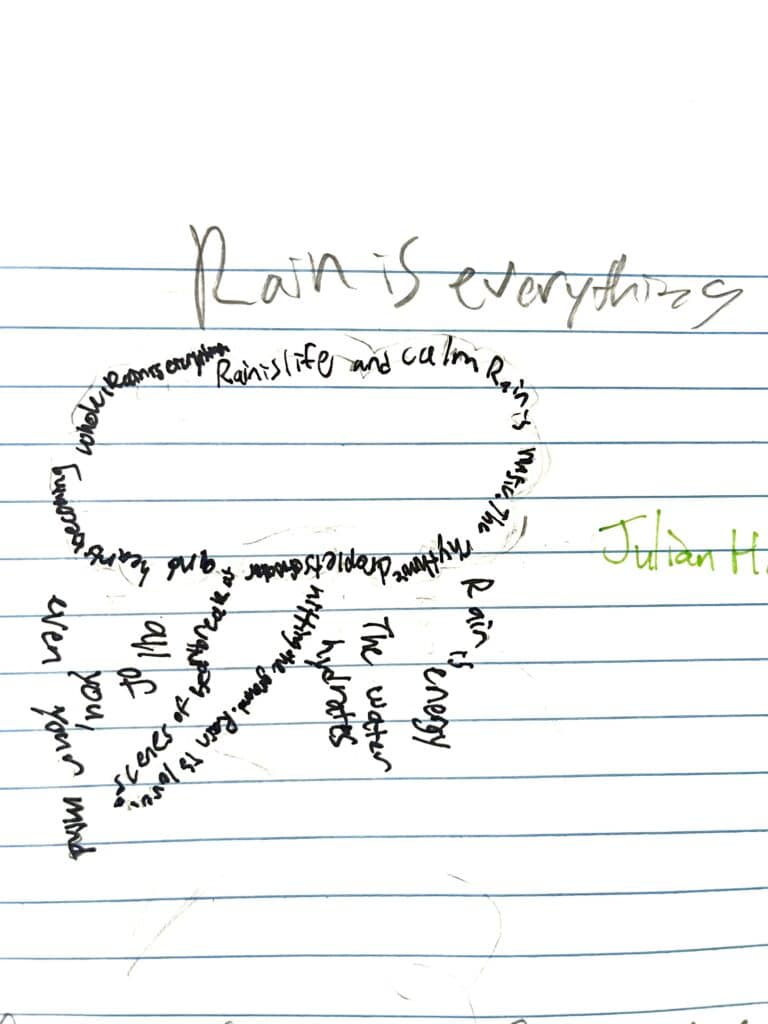 Rain is everything
Rain is life and calm Rain is music. The rhythmic droplets
hitting the ground. Rain is love.
and hearts becoming whole. Rain is everything
Julian H.
Rain is energy
The water
hydrates
all of
you,
even your mind